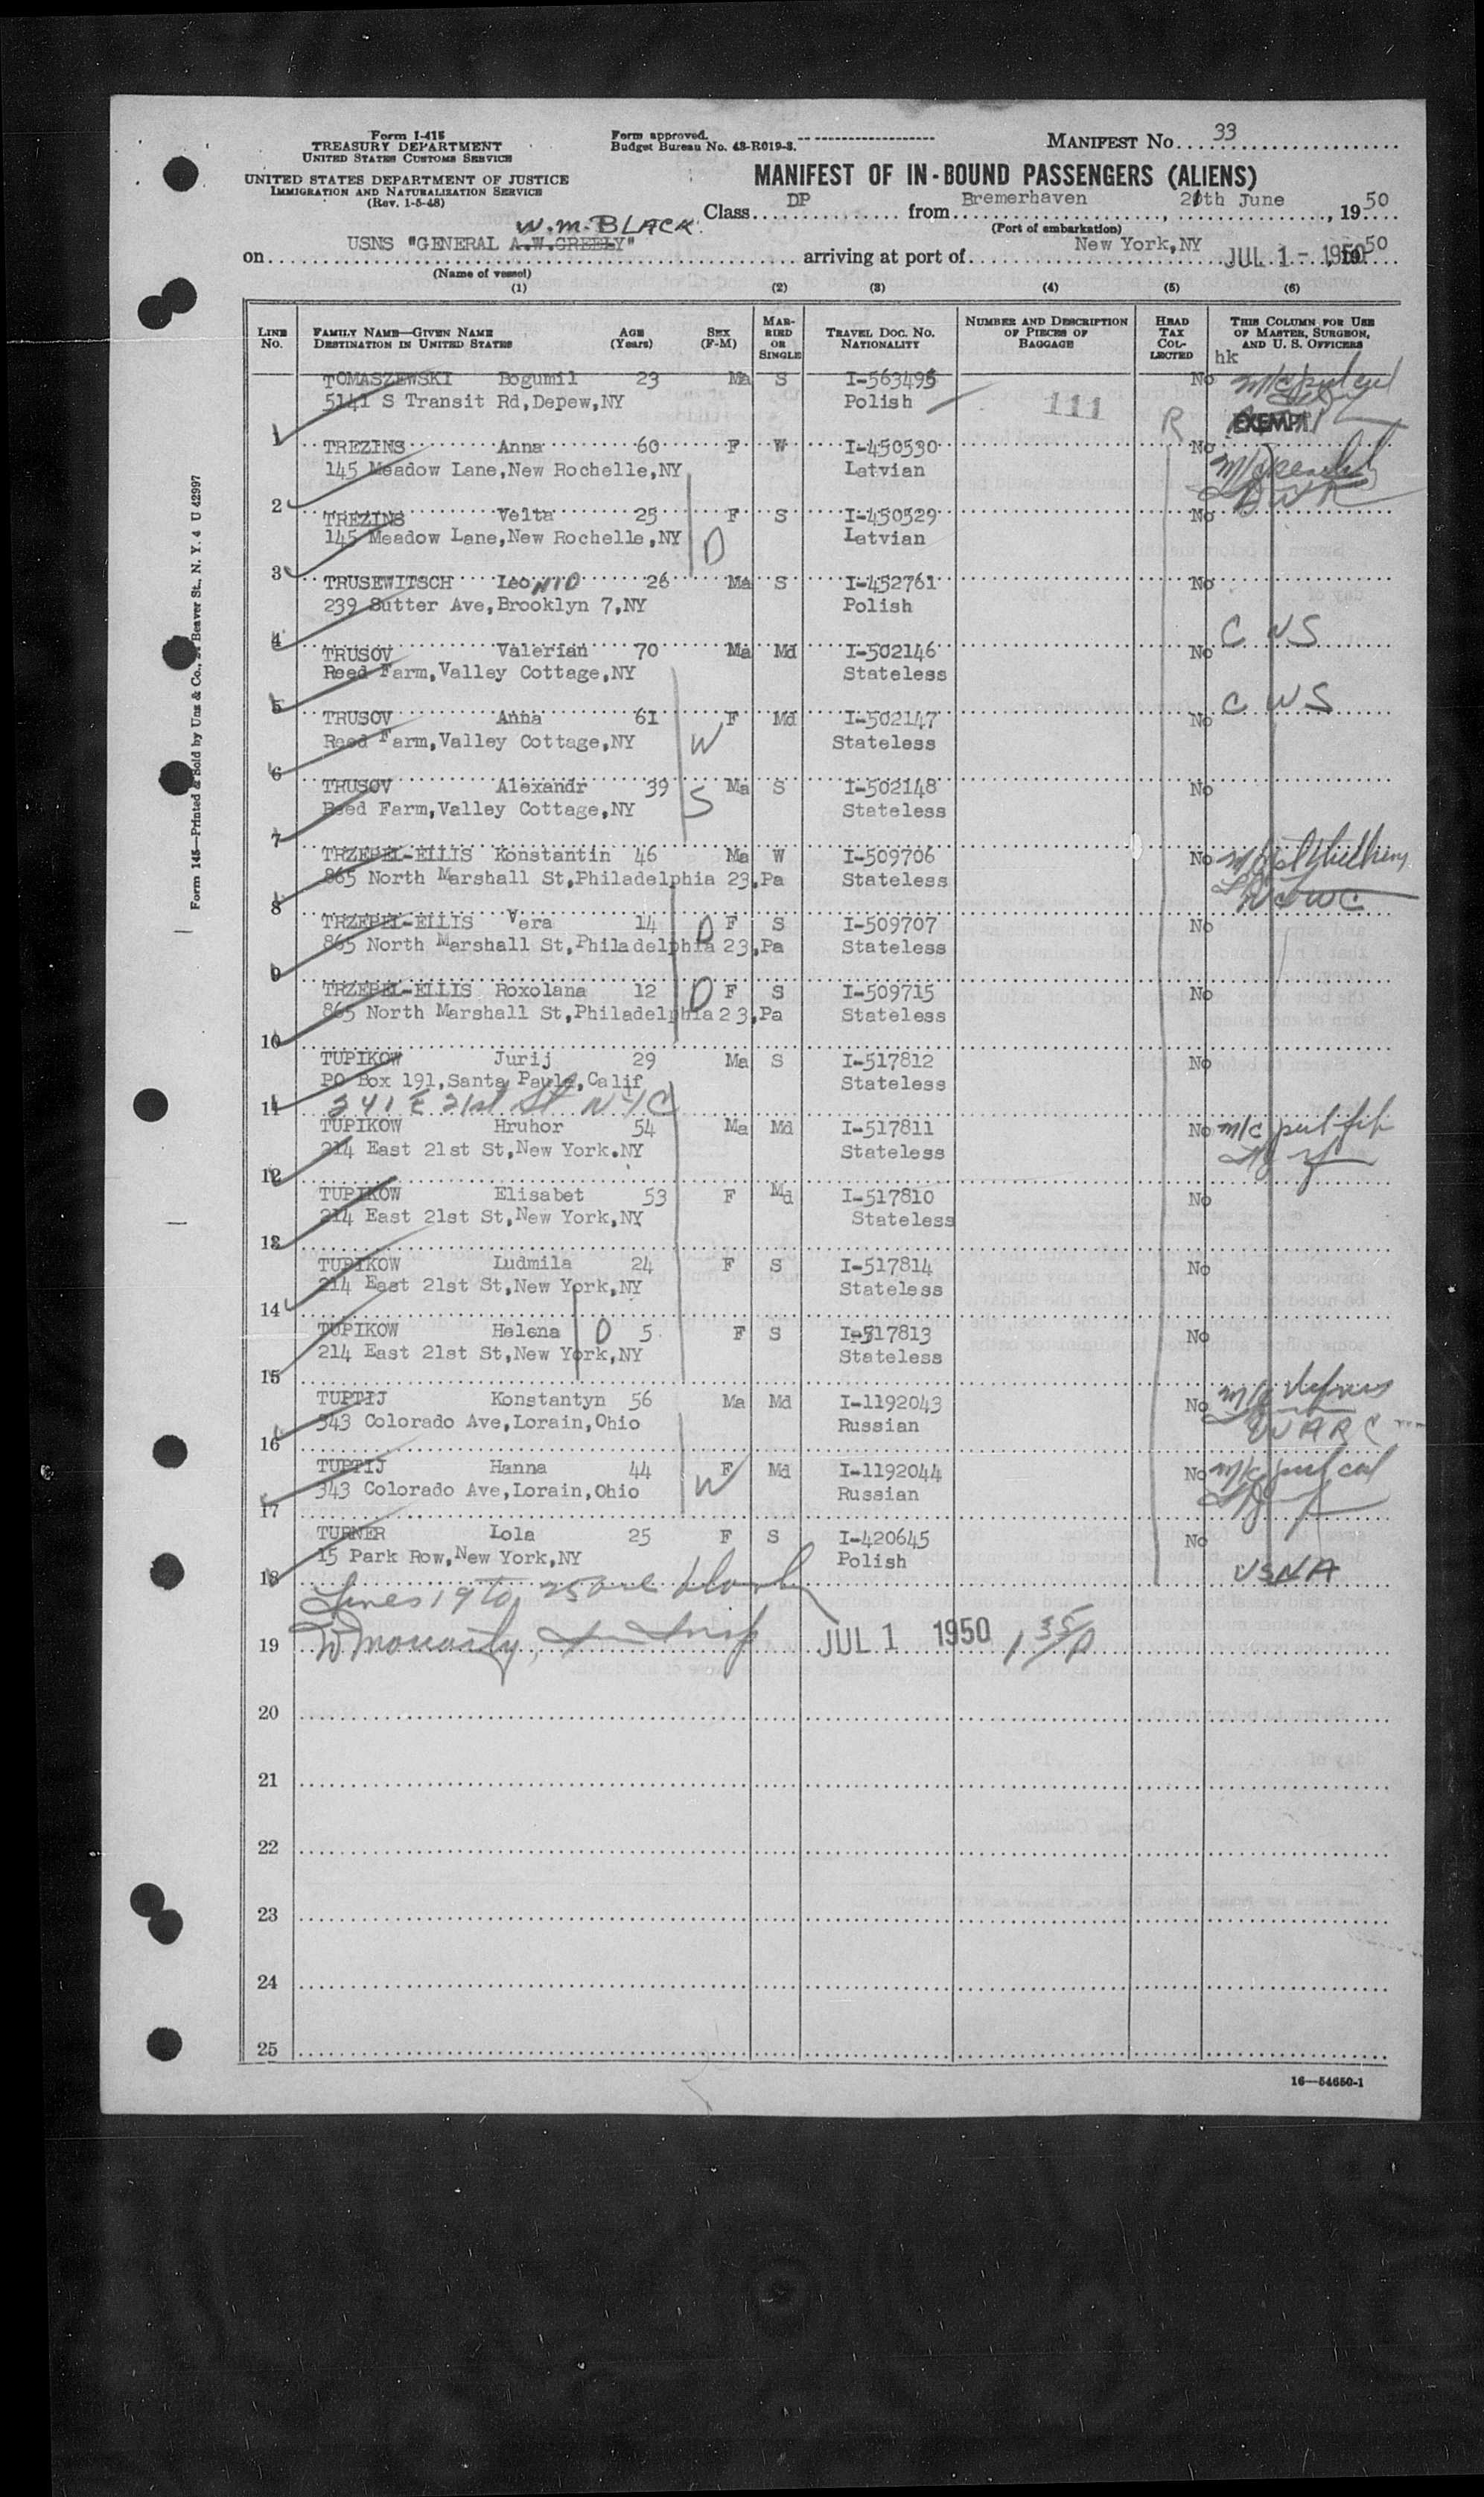 Form I-415
TREASURY DEPARTMENT
UNITED STATES CUSTOMS SERVICE
UNITED STATES DEPARTMENT OF JUSTICE
IMMIGRATION AND NATURALIZATION SERVICE
(Rev. 1-5-48)
Form approved.
Budget Bureau No. 43-R019-3.
MANIFEST No. 33
MANIFEST OF IN-BOUND PASSENGERS (ALIENS)
Class DP from Bremerhaven, 20th June, 1950
(Port of embarkation)
W.M. BLACK
on USNS "GENERAL A.W.GREELY" arriving at port of New York,NY JUL 1 - 1950 50
(Name of vessel)
(1) (2) (3) (4) (5) (6)
LINE No. FAMILY NAME—GIVEN NAME DESTINATION IN UNITED STATES AGE (Years) SEX (F-M) MARRIED OR SINGLE TRAVEL DOC. NO. NATIONALITY NUMBER AND DESCRIPTION OF PIECES OF BAGGAGE HEAD TAX COLLECTED THIS COLUMN FOR USE OF MASTER, SURGEON, AND U. S. OFFICERS
hk
TOMASZEWSKI Bogumil 23 Ma S I-563495 No
5141 S Transit Rd,Depew,NY Polish 111
1 R EXEMPT
TREZINS Anna 60 F W I-450530 No
145 Meadow Lane,New Rochelle,NY Latvian
2
TREZINS Velta 25 F S I-450529 No
145 Meadow Lane,New Rochelle,NY D Latvian
3
TRUSEWITSCH Leo NID 26 Ma S I-452761 No
239 Sutter Ave,Brooklyn 7,NY Polish
4 C WS
TRUSOV Valerian 70 Ma Md I-502146 No
Reed Farm,Valley Cottage,NY Stateless
5 C WS
TRUSOV Anna 61 F Md I-502147 No
Reed Farm,Valley Cottage,NY W Stateless
6
TRUSOV Alexandr 39 Ma S I-502148 No
Reed Farm,Valley Cottage,NY S Stateless
7
TRZEPEL-ELLIS Konstantin 46 Ma W I-509706 No
865 North Marshall St,Philadelphia 23,Pa Stateless
8
TRZEPEL-ELLIS Vera 14 D F S I-509707 No
865 North Marshall St,Philadelphia 23,Pa Stateless
9
TRZEPEL-ELLIS Roxolana 12 D F S I-509715 No
865 North Marshall St,Philadelphia 23,Pa Stateless
10
TUPIKOW Jurij 29 Ma S I-517812 No
PO Box 191,Santa Paula,Calif Stateless
11 241 E 21st St NYC
TUPIKOW Hruhor 54 Ma Md I-517811 No
214 East 21st St,New York.NY Stateless
12
TUPIKOW Elisabet 53 F Md I-517810 No
214 East 21st St,New York,NY Stateless
13
TUPIKOW Ludmila 24 F S I-517814 No
214 East 21st St,New York,NY Stateless
14
TUPIKOW Helena D 5 F S I-517813 No
214 East 21st St,New York,NY Stateless
15
TUPTIJ Konstantyn 56 Ma Md I-1192043 No
343 Colorado Ave,Lorain,Ohio Russian
16
TUPTIJ Hanna 44 F Md I-1192044 No
343 Colorado Ave,Lorain,Ohio W Russian
17
TURNER Lola 25 F S I-420645 No
15 Park Row,New York,NY Polish
18 USNA
Lines 19 to 25 are blank
19 JUL 1 1950
20
21
22
23
24
25
16—54650-1
Form 145—Printed & Sold by Unz & Co., Beaver St., N. Y. 4 U 42997